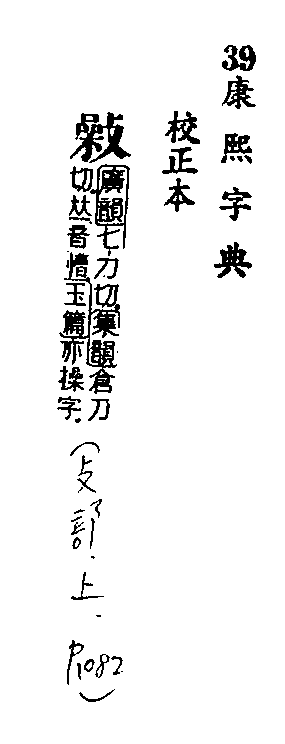 39康熙字典
校正本
廣韻七刀切,集韻倉刀
切,𠀤音慒,玉篇亦操字.
(攴部.上.P1082)